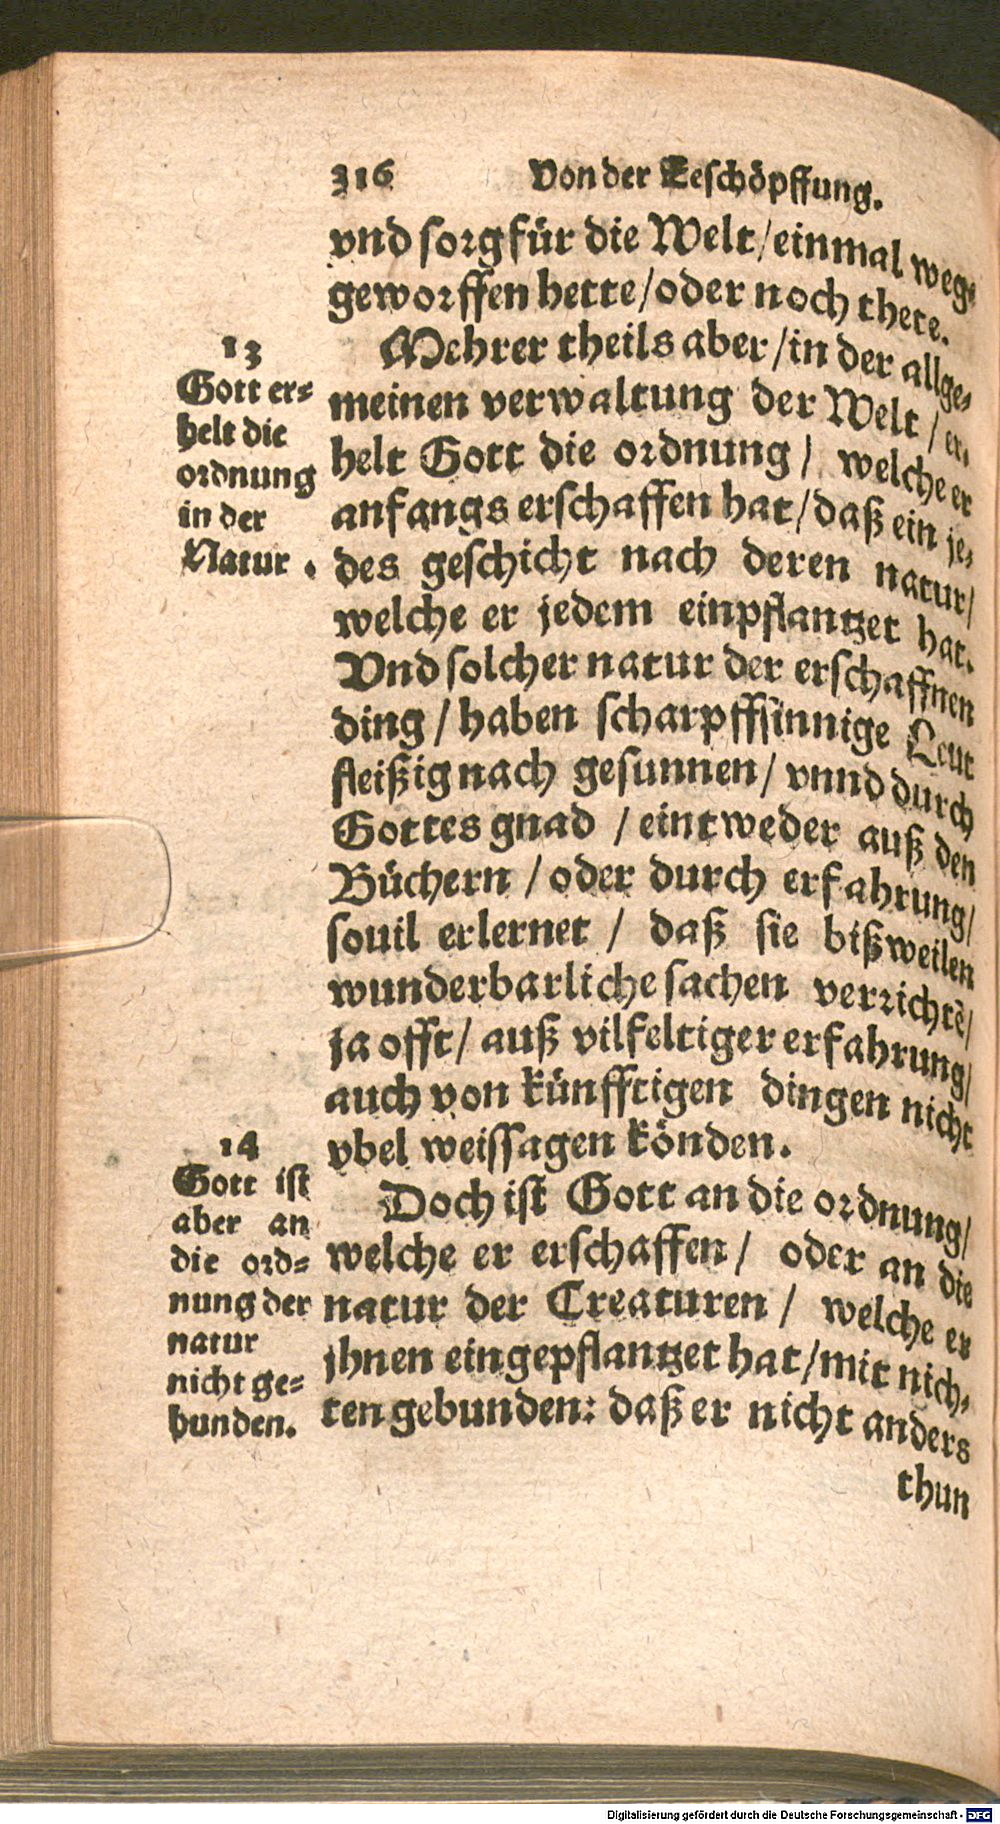 316 Von der Eeschöpffung.
vnd sorg für die Welt/ einmal weg-
geworffen hette/ oder noch thete.
Mehrer theils aber/ in der allge-
meinen verwaltung der Welt/ er-
helt Gott die ordnung/ welche er
anfangs erschaffen hat/ daß ein je-
des geschicht nach deren natur/
welche er jedem einpflantzet hat.
Vnd solcher natur der erschaffnen
ding/ haben scharpffsinnige Leut
fleißig nach gesunnen/ vnnd durch
Gottes gnad/ eintweder auß den
Büchern/ oder durch erfahrung/
souil erlernet/ daß sie bißweilen
wunderbarliche sachen verrichtẽ/
ja offt/ auß vilfeltiger erfahrung/
auch von künfftigen dingen nicht
vbel weissagen könden.
Doch ist Gott an die ordnung/
welche er erschaffen/ oder an die
natur der Creaturen/ welche er
jhnen eingepflantzet hat/ mit nich-
ten gebunden: daß er nicht anders
thun
13
Gott er-
helt die
ordnung
in der
Natur.
14
Gott ist
aber an
die ord-
nung der
natur
nicht ge-
bunden.
Digitalisierung gefördert durch die Deutsche Forschungsgemeinschaft - DFG